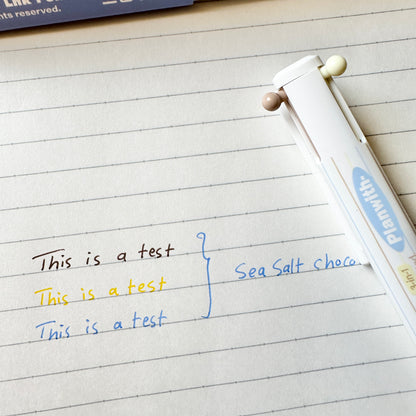 ts reserved.
This is a test
This is a test
This is a test
Sea Salt choco
Planwith
3in1